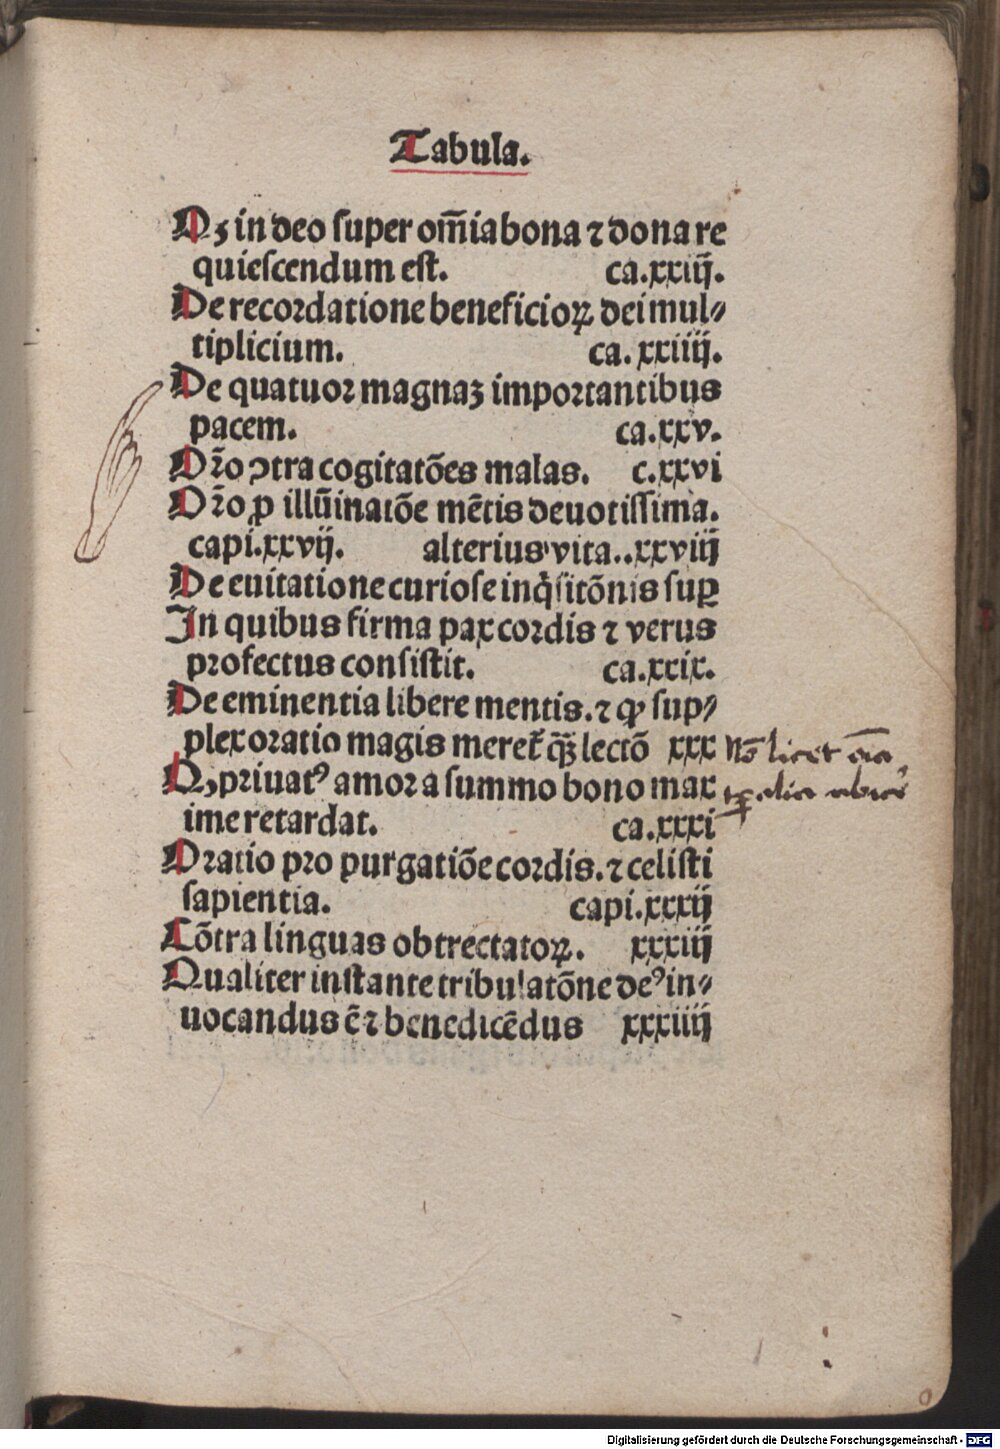 Tabula.
Qꝫ in deo super om̄ia bona ⁊ dona re
quiescendum est. ca.xxiij.
De recordatione beneficioꝝ dei mul⸗
tiplicium. ca. xxiiij.
De quatuor magnaꝫ importantibus
pacem. ca.xxv.
Or̄o ↄtra cogitatōes malas. c.xxvi
Or̄o ꝓ illūinatōe mētis deuotissima.
capi.xxvij. alterius vita..xxviij
De euitatione curiose inq̇sitōnis suꝑ
In quibus firma pax cordis ⁊ verus
profectus consistit. ca.xxix.
De eminentia libere mentis. ⁊ ꝙ sup⸗
plex oratio magis meret᷑ q̄ꝫ lectō xxx
Qꝫ priuatꝰ amor a summo bono max
ime retardat. ca.xxxi
Oratio pro purgatiōe cordis. ⁊ celisti
sapientia. capi.xxxij
Cōtra linguas obtrectatoꝝ. xxxiij
Qualiter instante tribulatōne deꝰ in⸗
uocandus ē ⁊ benedicēdus xxxiiij
Nō licet
Digitalisierung gefördert durch die Deutsche Forschungsgemeinschaft - DFG